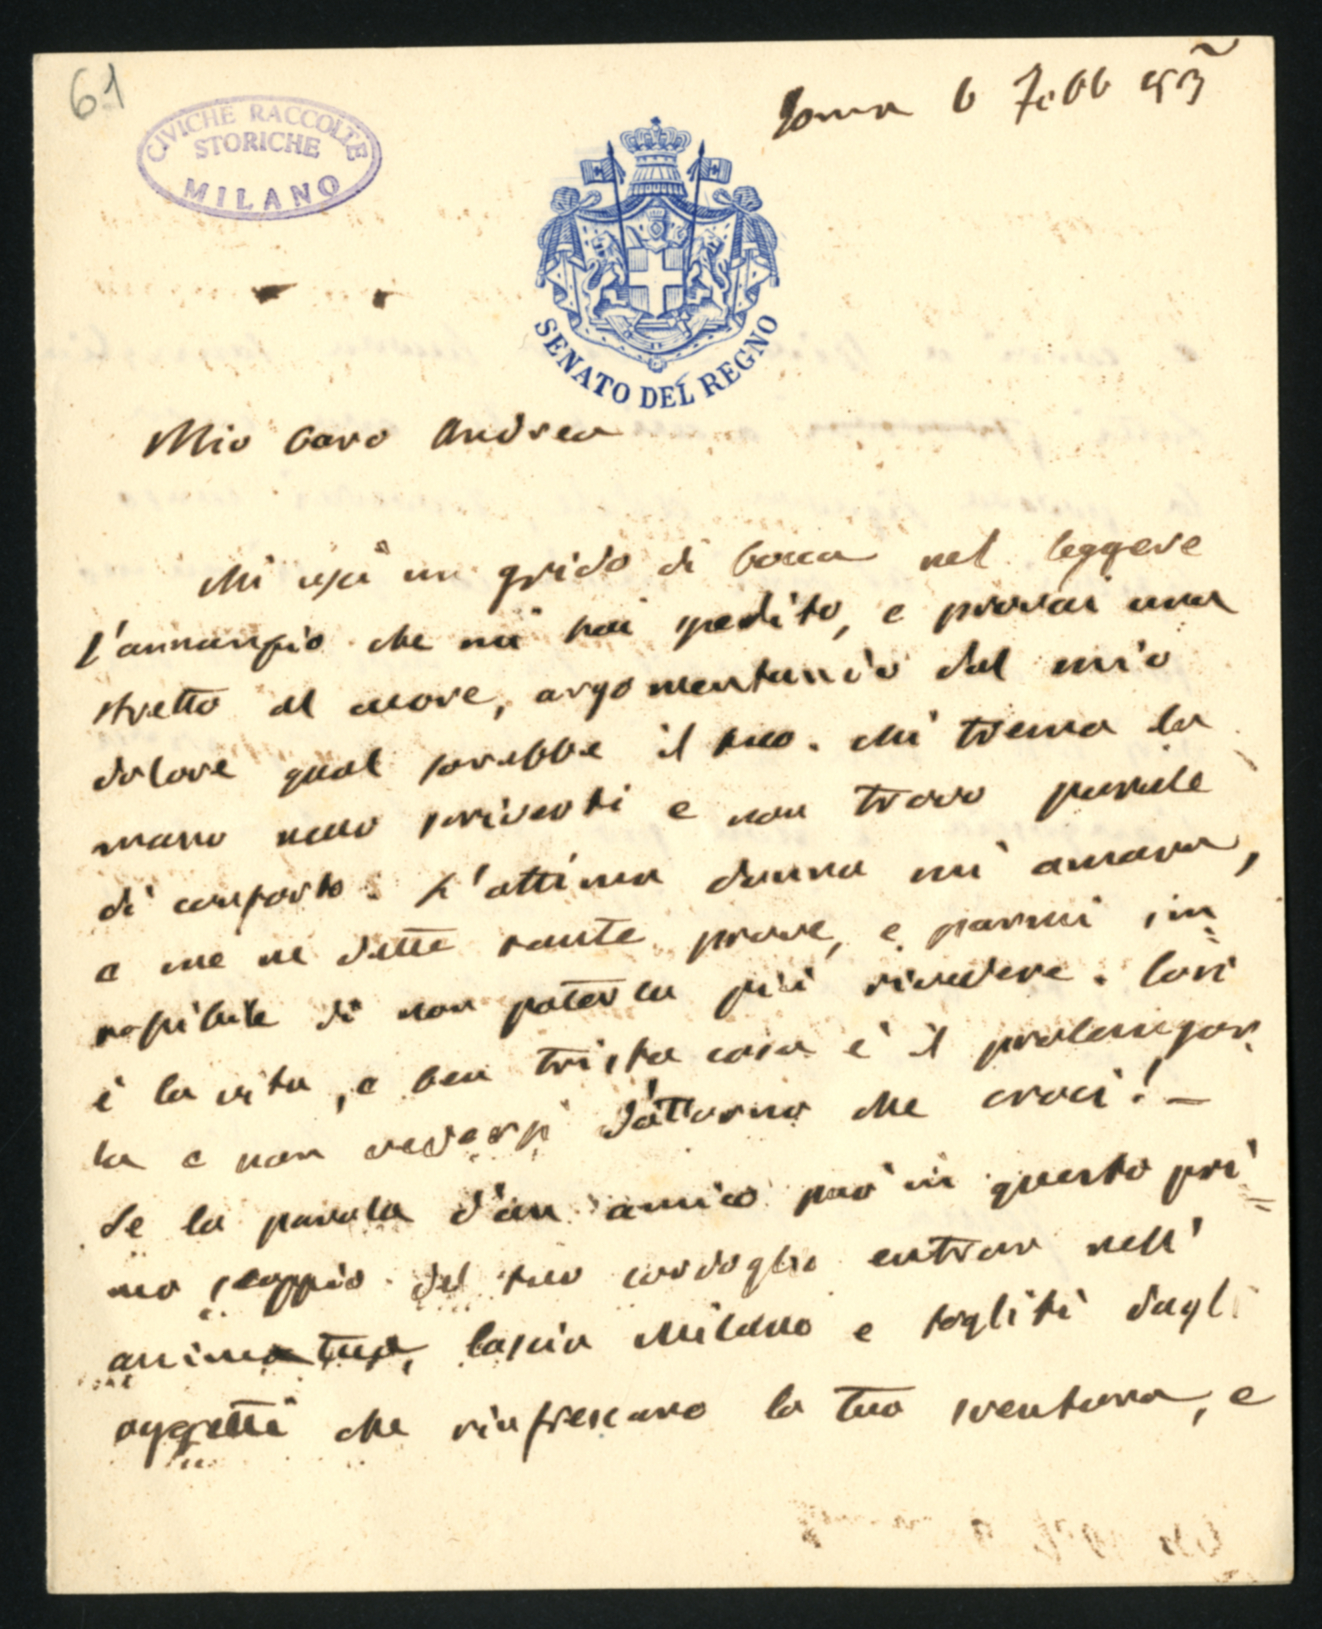 61
CIVICHE RACCOLTE
STORICHE
MILANO
Roma 6 Febb 93
SENATO DEL REGNO
Mio caro Andrea
Mi uscì un grido di bocca nel leggere
l'annunzio che mi hai spedito, e provai una
stretta al cuore, argomentando dal mio
dolore qual sarebbe il tuo. Mi trema la
mano nello scriverti e non trovo parole
di conforto. L'ottima donna mi amava,
e me ne dette tante prove, e parmi im=
possibile di non poterla più rivedere. Così
è la vita, e ben trista cosa è il prolungar
la e non vedersi d'attorno che croci! –
Se la parola d'un amico può in questo pri=
mo scoppio del tuo cordoglio entrar nell'
animo tuo, lascia Milano e togliti dagli
oggetti che rinfrescano la tua sventura, e